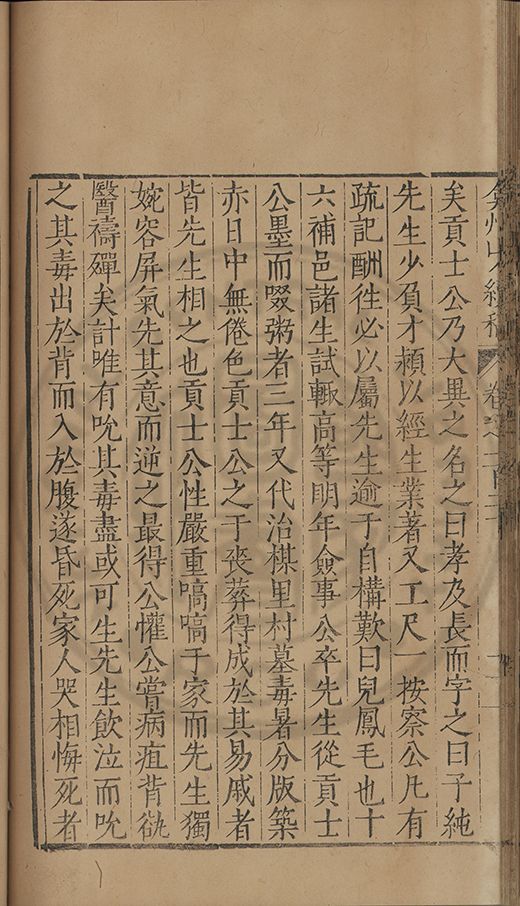 矣貢士公乃大異之名之曰孝及長而字之曰子純
先生少負才頼以經生業著又工尺一按察公凡有
疏記酬徃必以屬先生逾于自構歎曰兒鳳毛也十
六補邑諸生試輙高等明年僉事公卒先生從貢士
公墨而啜粥者三年又代治楳里村墓毒暑分版築
赤日中無倦色貢士公之于喪葬得成於其易戚者
皆先生相之也貢士公性嚴重嗃嗃于家而先生獨
婉容屏氣先其意而逆之最得公懽公嘗病疽背欲
醫禱殫矣計唯有吮其毒盡或可生先生飲泣而吮
之其毒出於背而入於腹遂昏死家人哭相悔死者